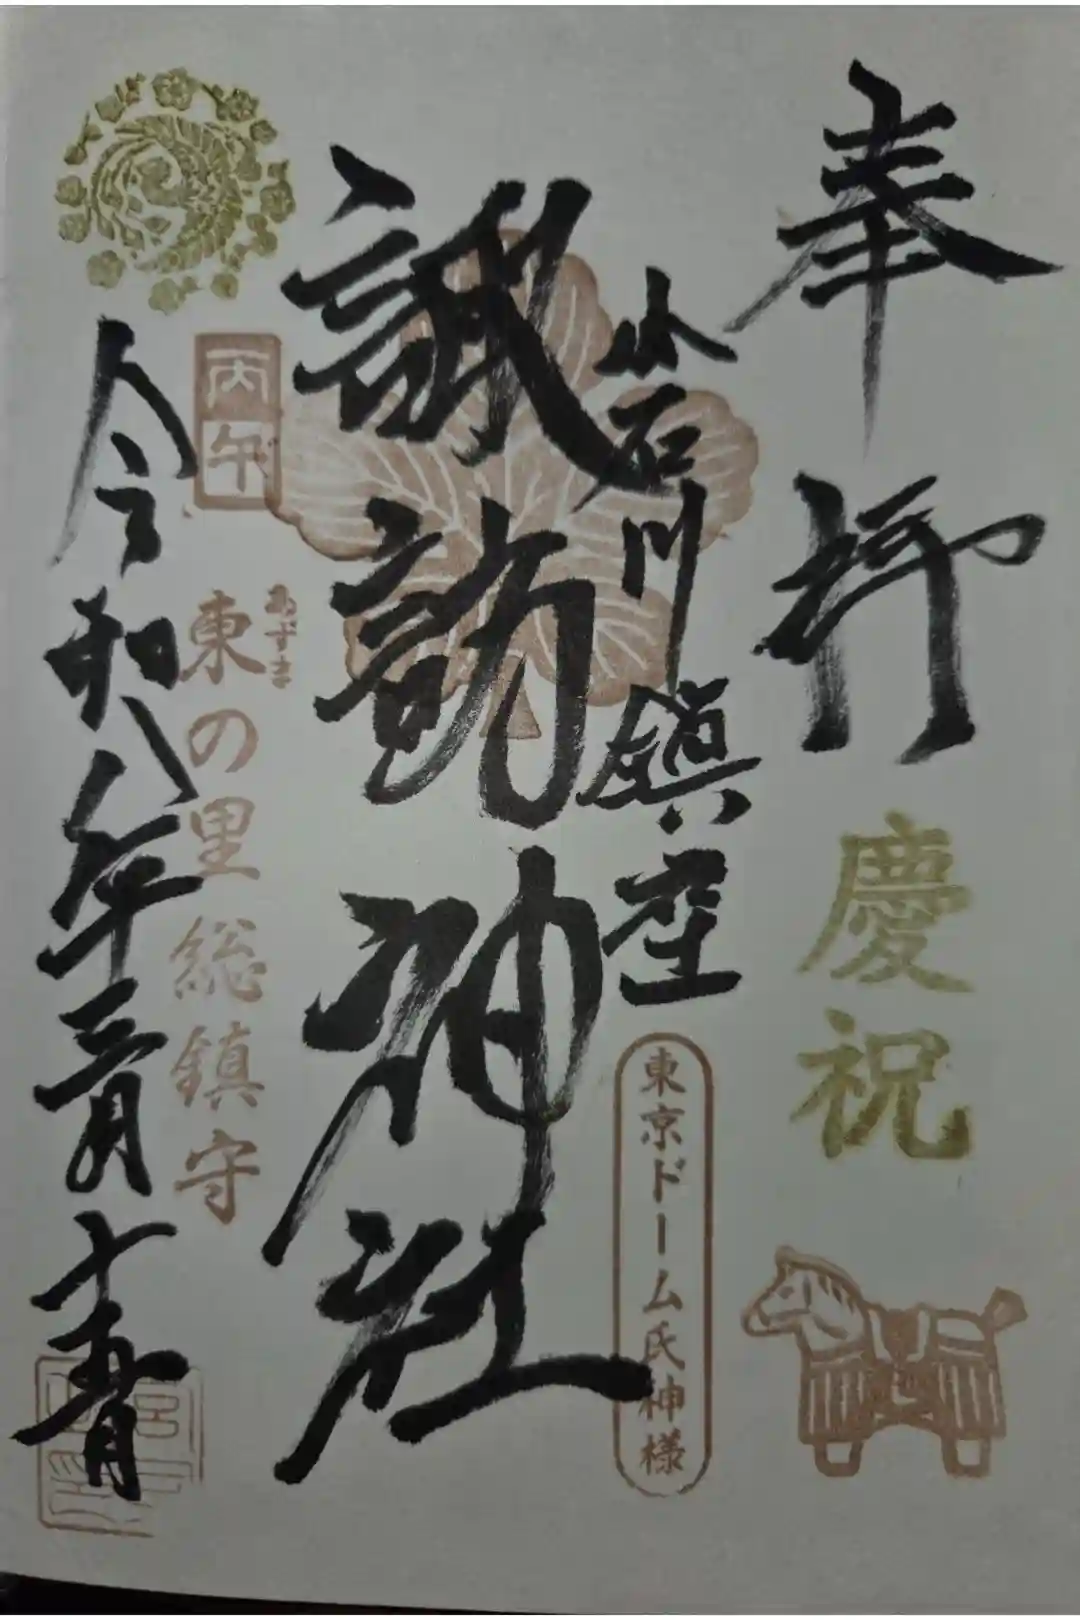 奉拝
慶祝
小石川鎮座
東京ドーム氏神様
諏訪神社
丙午
あずま
東の里総鎮守
令和八年三月十